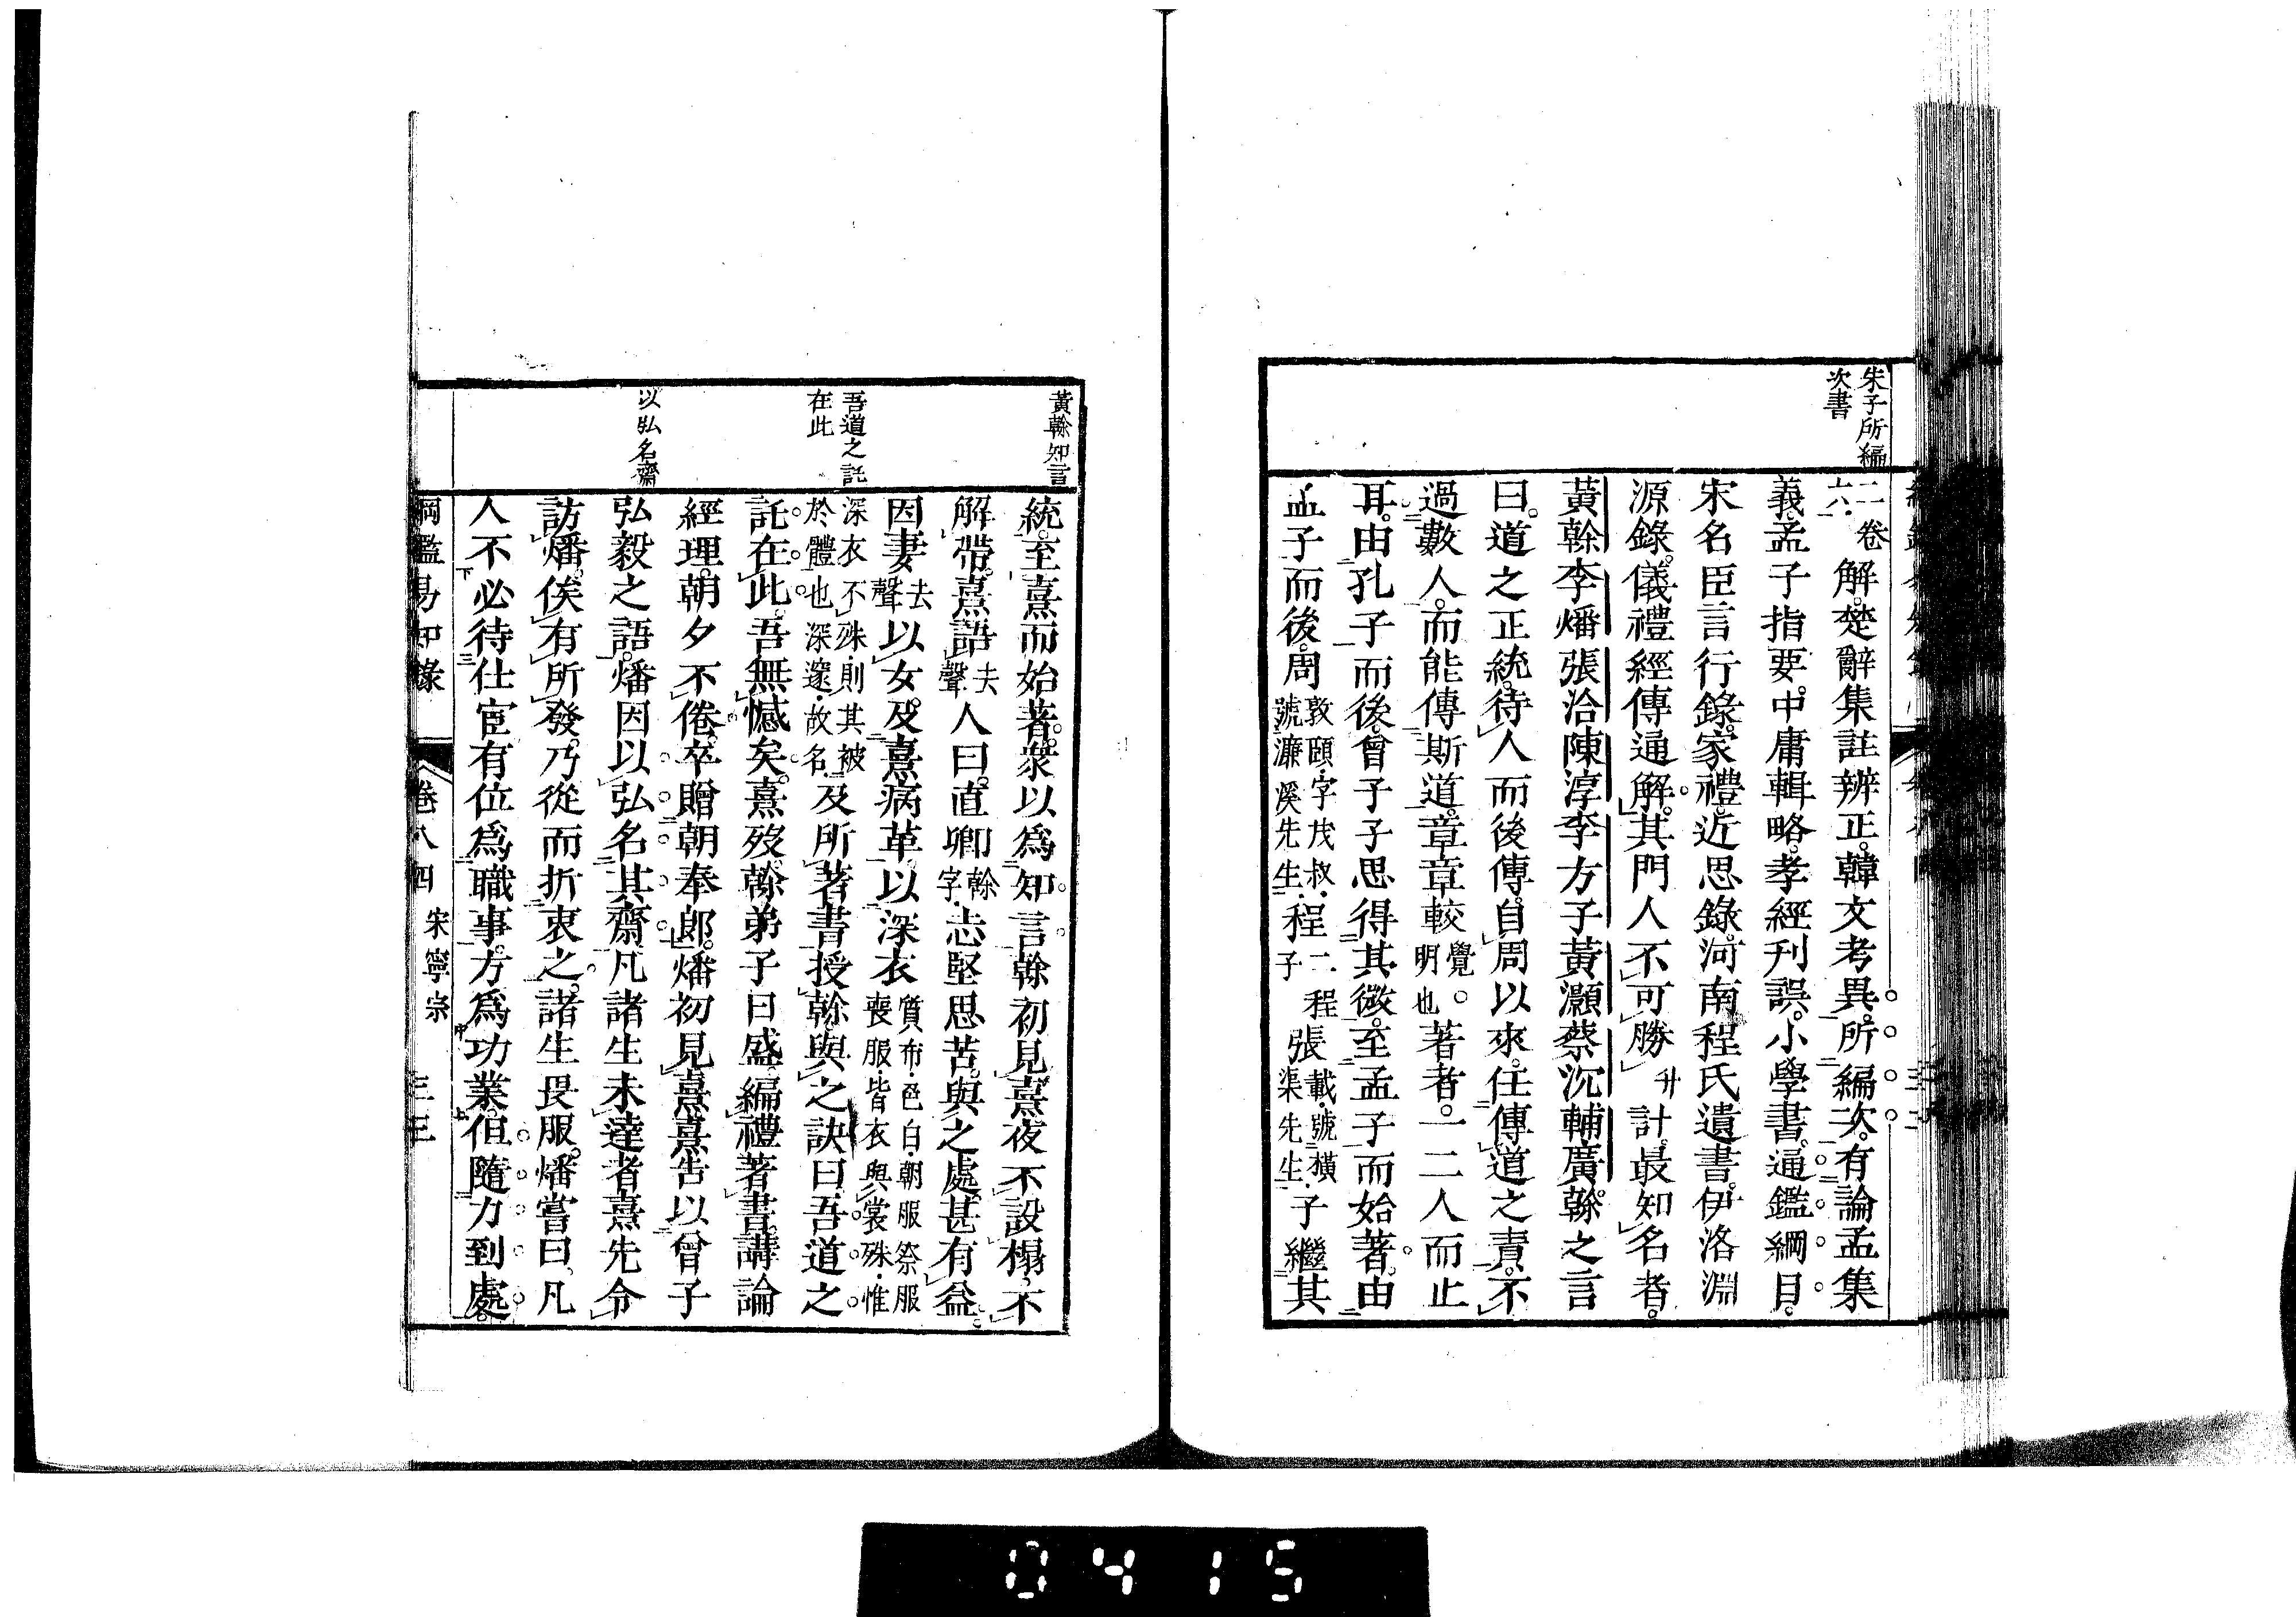 朱子所編
次書
二卷六解楚辭集註辨正韓文考異所編次有論孟集
義孟子指要中庸輯略孝經刊誤小學書通鑑綱目
宋名臣言行錄家禮近思錄河南程氏遺書伊洛淵
源錄儀禮經傳通解其門人不可勝升計最知名者
黃榦李燔張洽陳淳李方子黃灝蔡沉輔廣榦之言
曰道之正統待人而後傳自周以來任傳道之責不
過數人而能傳斯道章章較覺明也著者一二人而止
耳由孔子而後曾子子思得其微至孟子而始著由
孟子而後周敦頤字茂叔號濂溪先生程二程子張載號橫渠先生子繼其
黃榦知言
吾道之託
在此
以弘名齋
統至熹而始著衆以爲知言榦初見熹夜不設榻不
解帶熹語去聲人曰直卿榦字志堅思苦與之處甚有益
因妻去聲以女及熹病革以深衣質布色白朝服祭服喪服皆衣與裳殊惟
深衣不殊則其被於體也深邃故名及所著書授榦與之訣曰吾道之
託在此吾無憾矣熹歿榦弟子日盛編禮著書講論
經理朝夕不倦卒贈朝奉郎燔初見熹熹告以曾子
弘毅之語燔因以弘名其齋凡諸生未達者熹先令
訪燔俟有所發乃從而折衷之諸生畏服燔嘗曰凡
人不必待仕宦有位爲職事方爲功業但隨力到處
綱鑑易知錄 卷八四 宋寧宗 三三
0415